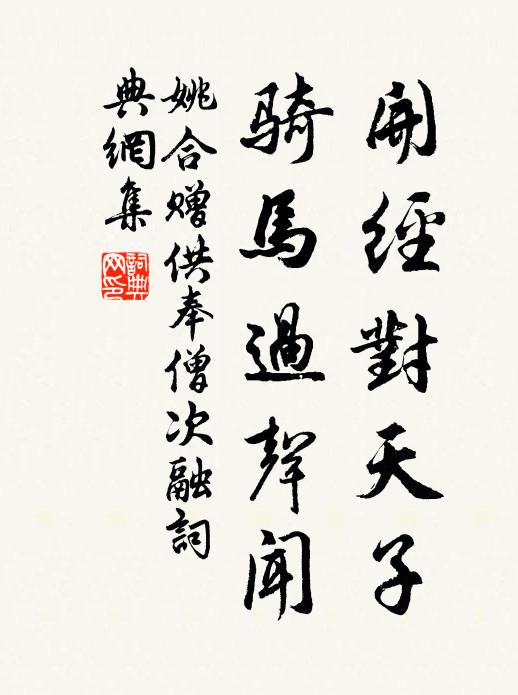 開經對天子
騎馬過聲聞
姚合贈供奉僧次融詞
典網集
詞典網印